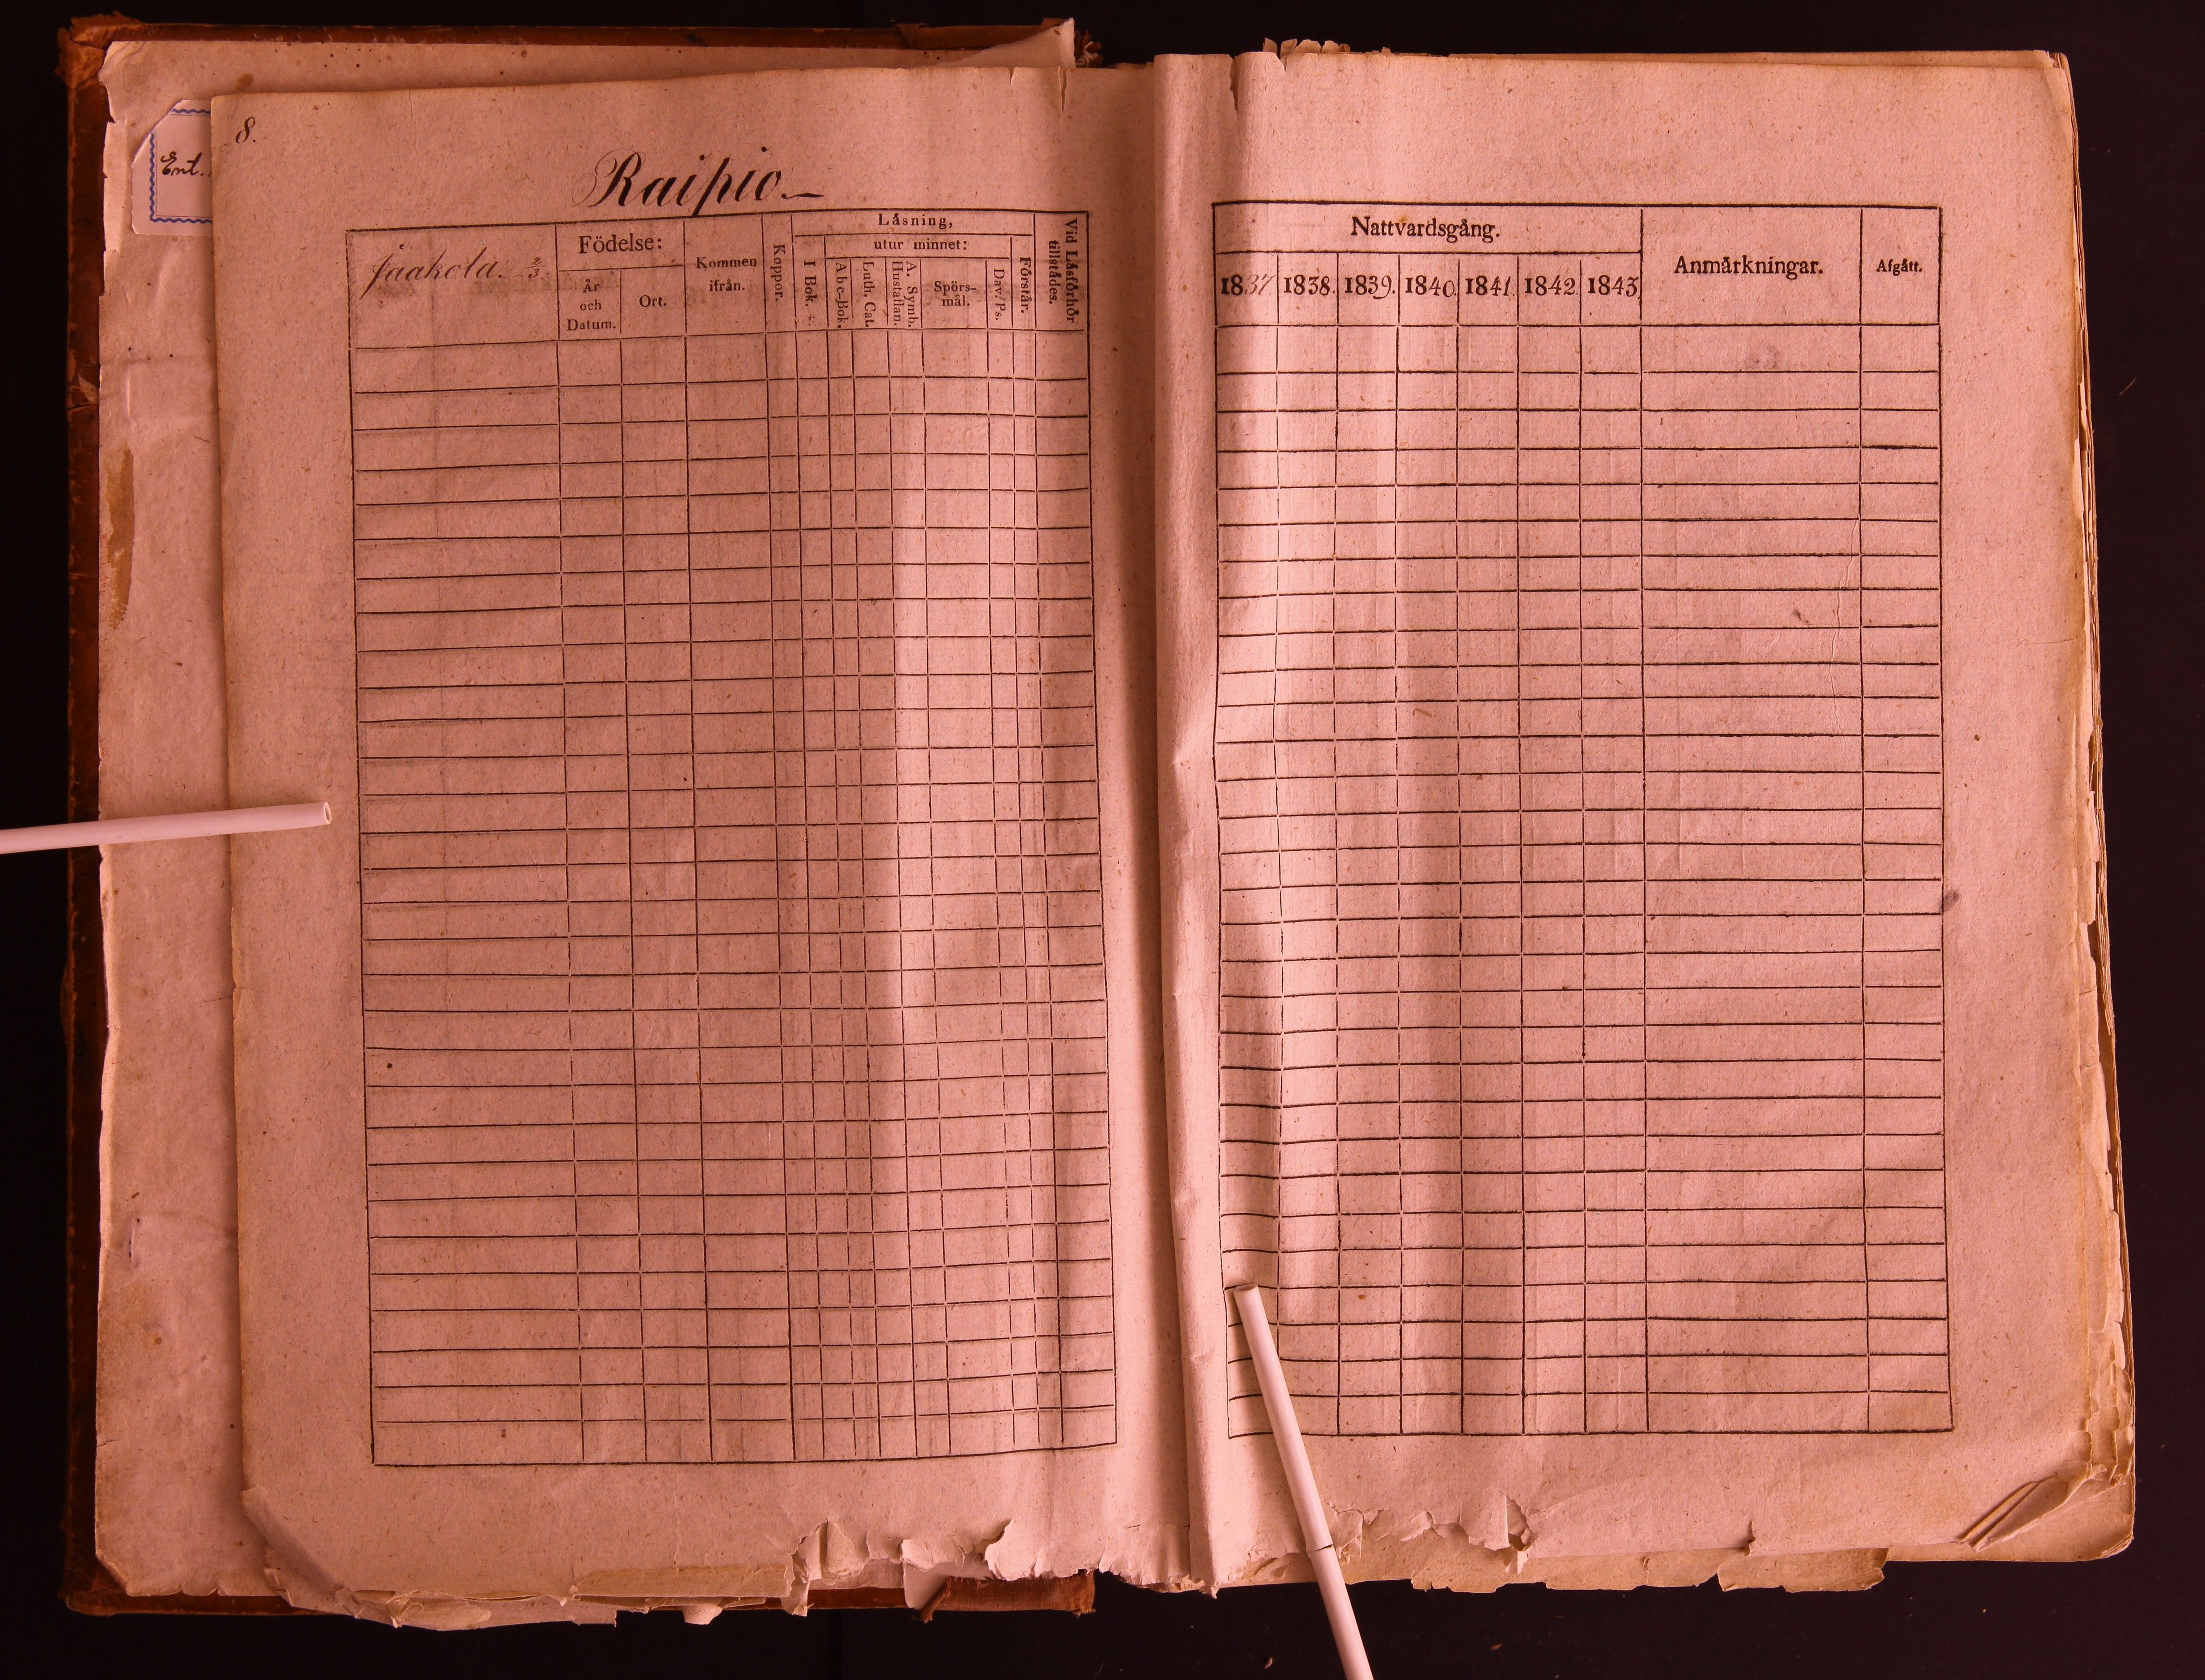 8.
Ent.
Raipio.
Jaakola. 2/3.
Födelse:
År och Datum.
Ort.
Kommen ifrån.
Koppor.
Låsning,
I Bok.
utur minnet:
Abc-Bok.
Luth. Cat.
A. Symb. Hustaflan.
Spörs-mål.
Dav. Ps.
Förstår.
Vid Låsförhör tillstådes.
Nattvardsgång.
1837 1838. 1839. 1840. 1841. 1842. 1843.
Anmårkningar.
Afgått.